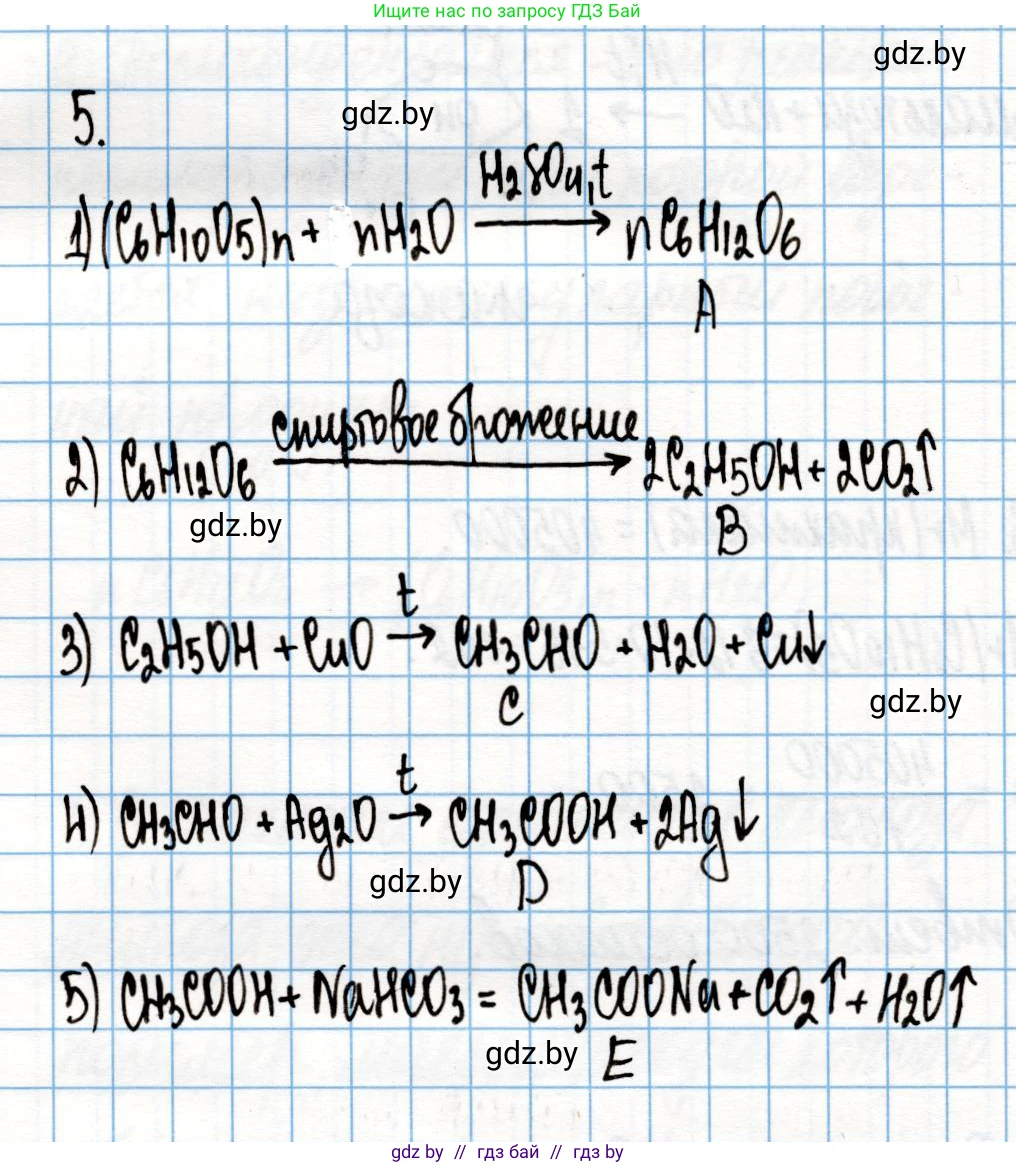 Ищите нас по запросу ГДЗ Бай
gdz.by
5.
gdz.by
H₂SO₄, t
1) (C₆H₁₀O₅)n + nH₂O → nC₆H₁₂O₆
A
спиртовое брожение
2) C₆H₁₂O₆ → 2C₂H₅OH + 2CO₂↑
gdz.by
B
t
3) C₂H₅OH + CuO → CH₃CHO + H₂O + Cu↓
C
gdz.by
t
4) CH₃CHO + Ag₂O → CH₃COOH + 2Ag↓
gdz.by
D
5) CH₃COOH + NaHCO₃ = CH₃COONa + CO₂↑ + H₂O↑
gdz.by
E
gdz.by // гдз бай // gdz.by